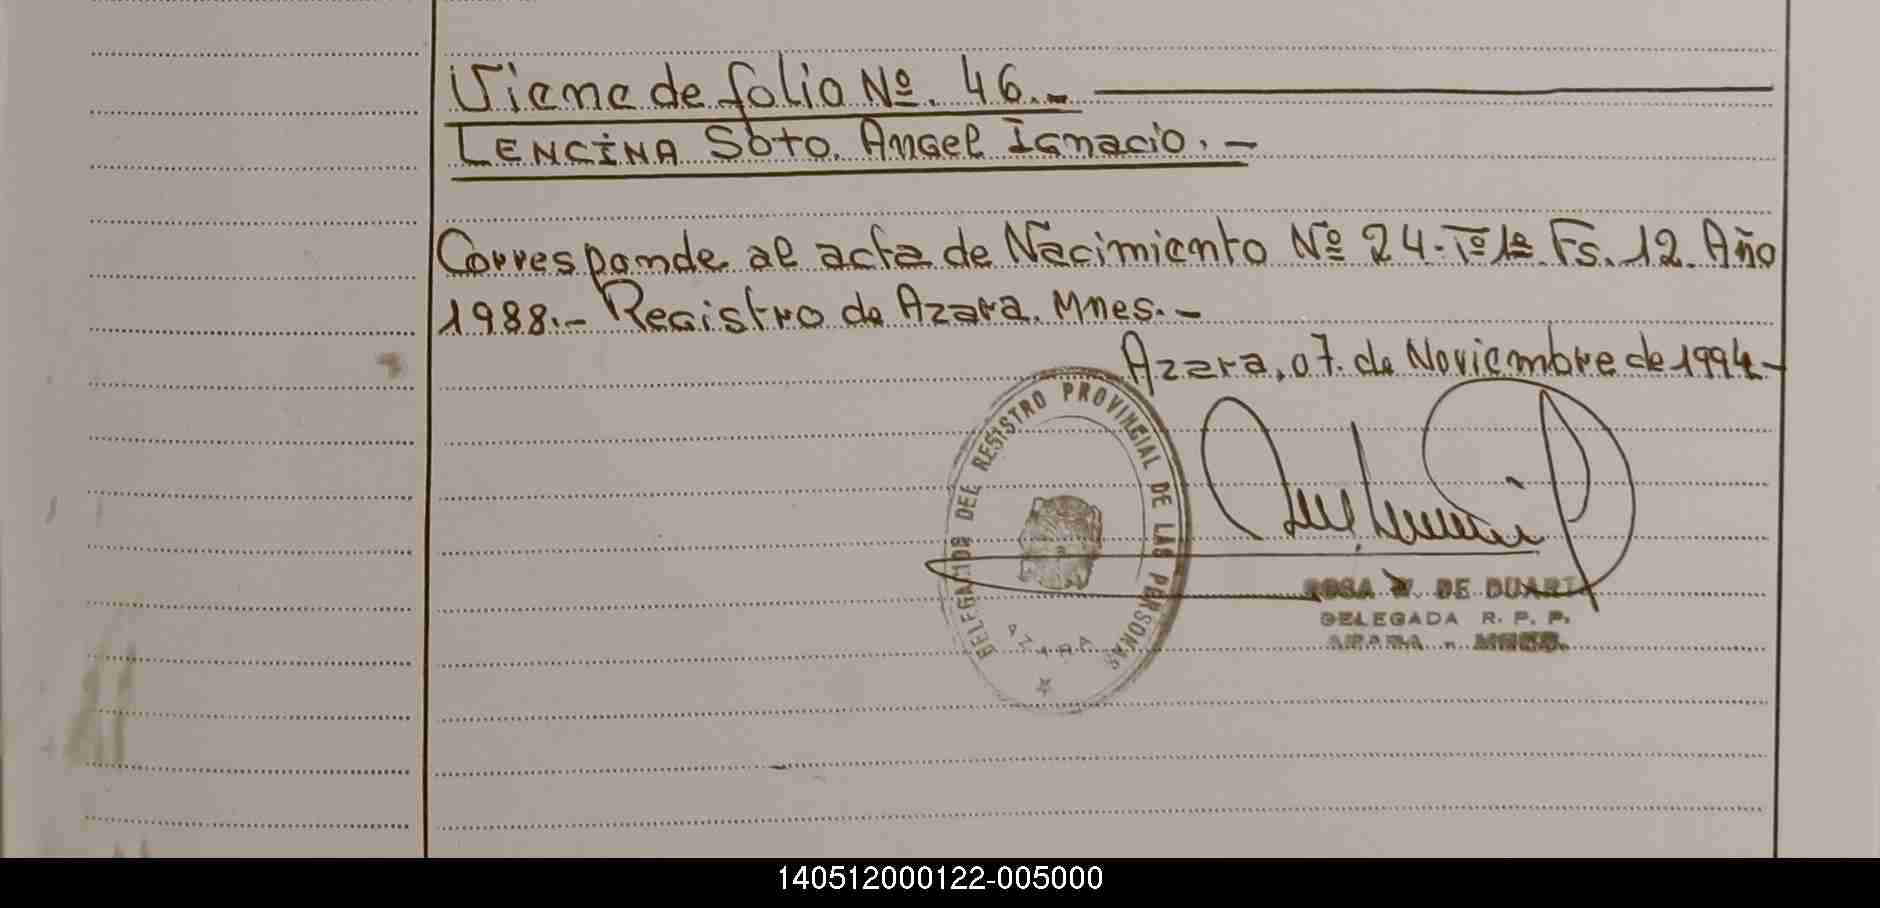 Viene de folio Nº. 46.-
LENCINA Soto. Angel Ignacio.-
Corresponde al acta de Nacimiento Nº 24-Tº1º Fs. 12. Año
1988.- Registro de Azara. Mnes.-
Azara, 07. de Noviembre de 1994-
DELEGACION DEL REGISTRO PROVINCIAL DE LAS PERSONAS
AZARA
ROSA W. DE DUARTE
DELEGADA R. P. P.
AZARA - MNES.
140512000122-005000